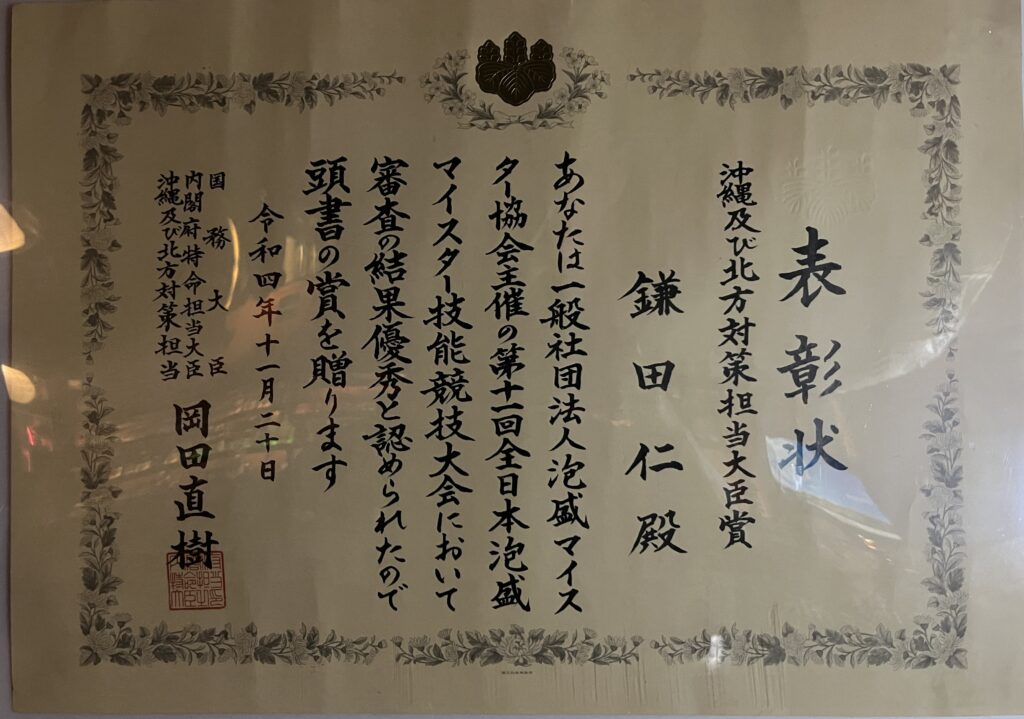 表彰状
沖縄及び北方対策担当大臣賞
鎌田仁殿
あなたは一般社団法人泡盛マイス
ター協会主催の第十一回全日本泡盛
マイスター技能競技大会において
審査の結果優秀と認められたので
頭書の賞を贈ります
令和四年十一月二十日
国務大臣
内閣府特命担当大臣
沖縄及び北方対策担当
岡田直樹